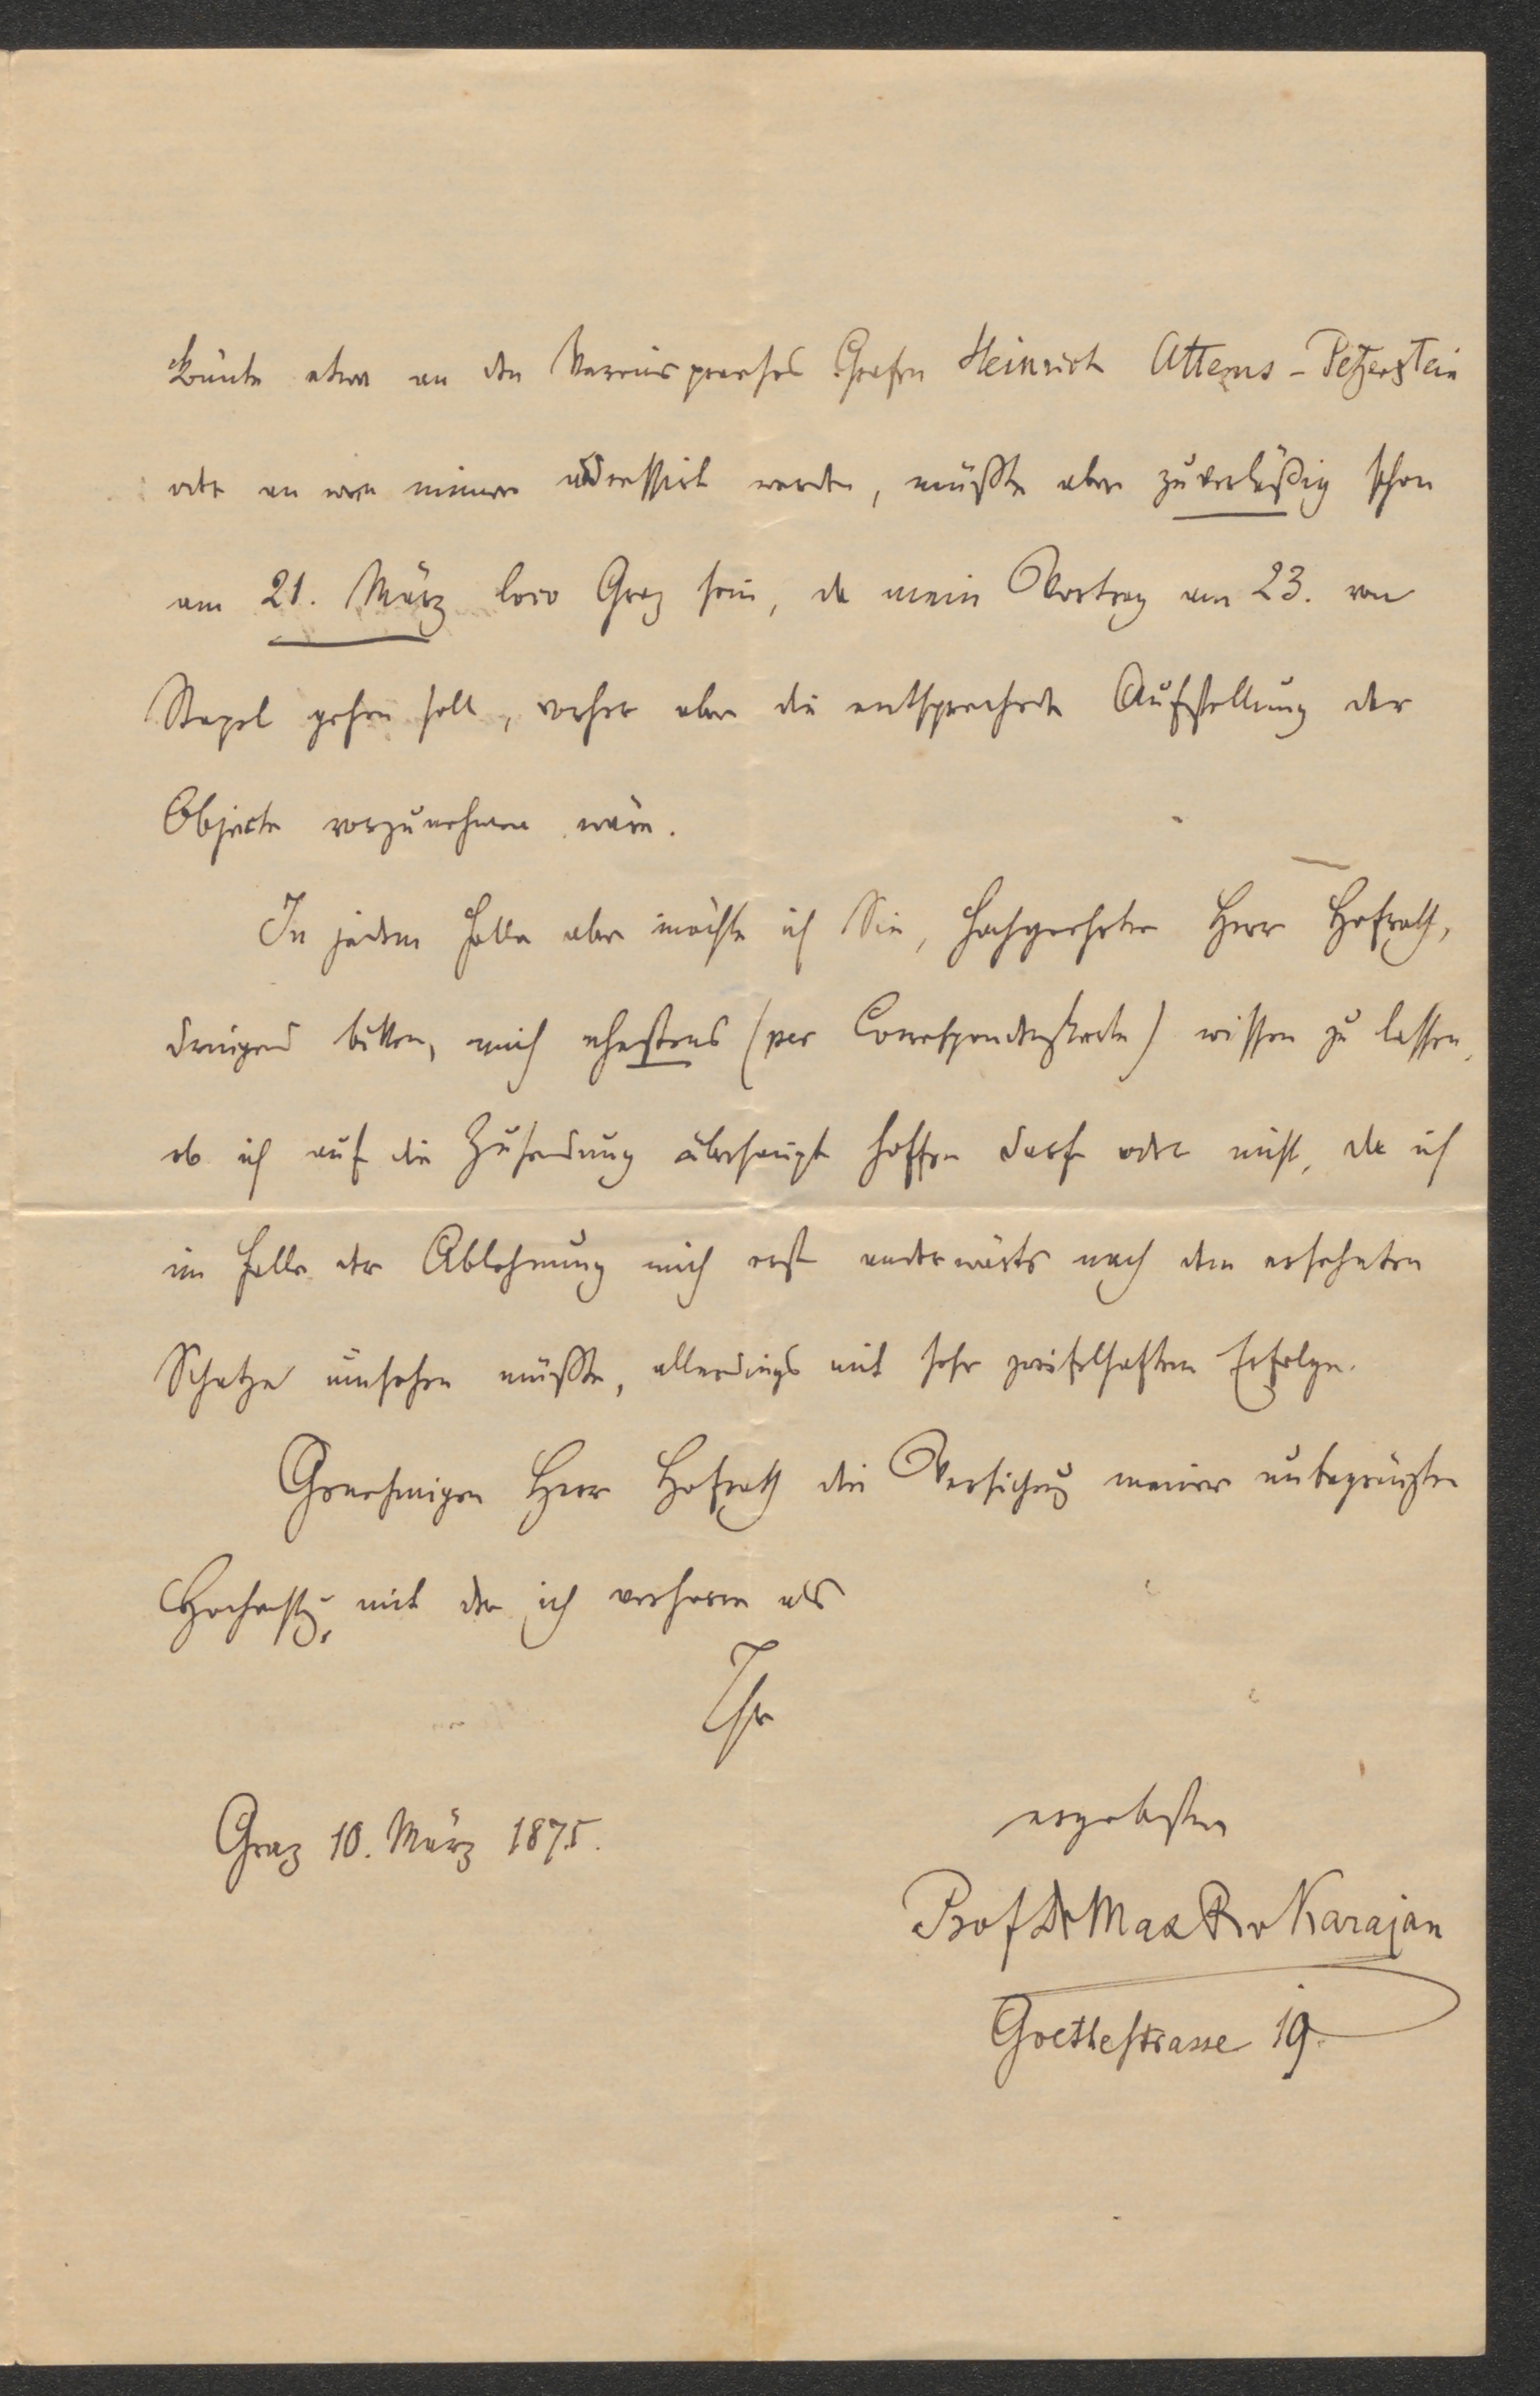 könnte etwa an den Vereinspraeses Grafen Heinrich Attems-Petzenstein
oder an wen immer adressirt werden, müßte aber zuverläßig schon
am 21. März loco Graz sein, da mein Vortrag am 23. von
Stapel gehen soll, vorher aber die entsprechende Aufstellung der
Objecte vorzunehmen wäre.
In jedem Falle aber möchte ich Sie, hochgeehrter Herr Hofrath,
dringend bitten, mich ehestens (per Correspondenzkarte) wissen zu lassen,
ob ich auf die Zusendung überhaupt hoffen darf oder nicht, da ich
im Falle der Ablehnung mich erst anderwärts nach dem ersehnten
Schatze umsehen müßte, allerdings mit sehr zweifelhaftem Erfolge.
Genehmigen Herr Hofrath die Versicherg meiner unbegränzten
Hochachtg, mit der ich verharre als
Ihr
ergebenster
Graz 10. März 1875.
Prof Dr Max R v Karajan
Goethestrasse 19.